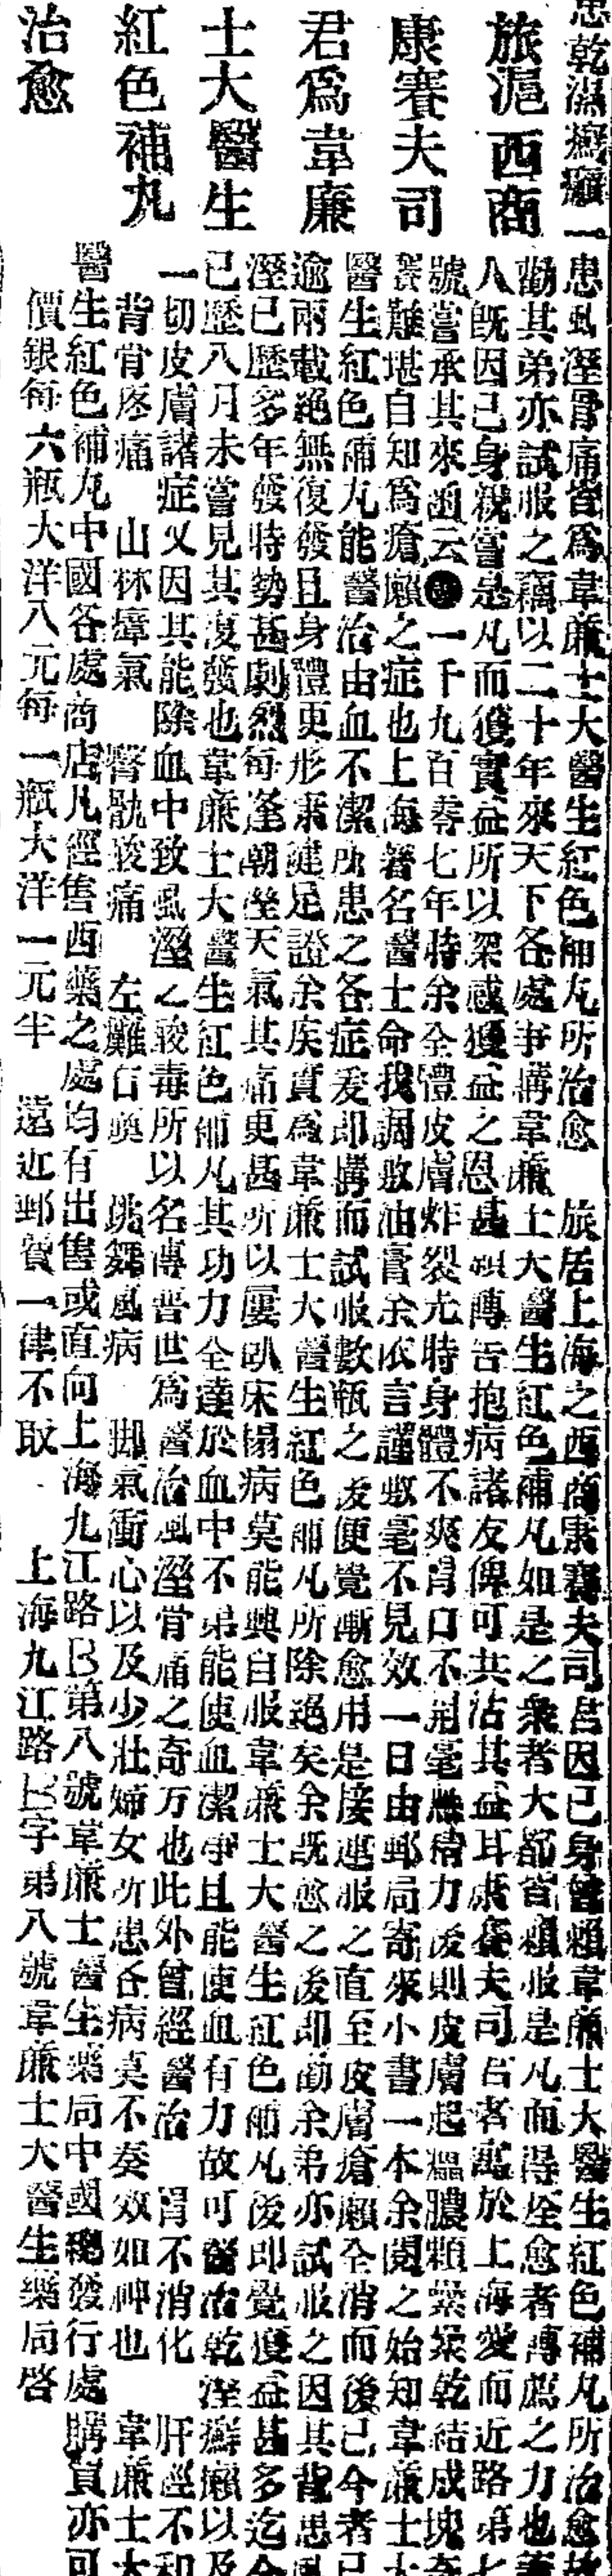 患乾濕癬癩一
旅滬西商
康賽夫司
君爲韋廉
士大醫生
紅色補丸
治愈
患風溼骨痛皆爲韋廉士大醫生紅色補丸所治愈　旅居上海之西商康賽夫司君因己身曾賴韋廉士大醫生紅色補丸所治愈故
勸其弟亦試服之竊以二十年來天下各處爭購韋廉士大醫生紅色補丸如是之衆者大都皆賴服是丸而得痊愈者傳薦之力也蓋
人既因己身親嘗是丸而獲實益所以深感獲益之恩甚願傳告抱病諸友俾可共沾其益耳康賽夫司君者寓於上海愛而近路第七
號嘗承其來函云●一千九百零七年時余全體皮膚炸裂尤時身體不爽胃口不開毫無精力後則皮膚起熅膿顆纍纍乾結成塊奇
癢難堪自知爲瘡癩之症也上海著名醫士命我調敷油膏余依言謹敷毫不見效一日由郵局寄來小書一本余閱之始知韋廉士大
醫生紅色補丸能醫治由血不潔所患之各症爰即購而試服數瓶之後便覺漸愈用是接連服之直至皮膚瘡癩全消而後已今者已
逾兩載絕無復發且身體更形康健足證余疾實爲韋廉士大醫生紅色補丸所除絕矣余既愈之後即勸余弟亦試服之因其背患風
溼已歷多年發時勢甚劇烈每逢朝溼天氣其痛更甚所以屢臥床榻病莫能興自服韋廉士大醫生紅色補丸後即覺獲益甚多迄今
已歷八月未嘗見其復發也韋廉士大醫生紅色補丸其功力全達於血中不弟能使血潔淨且能使血有力故可醫治乾溼癬癩以及
一切皮膚諸症又因其能除血中致風溼之酸毒所以名傳普世爲醫治風溼骨痛之奇方也此外曾經醫治　胃不消化　肝經不和
背骨疼痛　山林瘴氣　臀骱酸痛　左癱右瘓　跳舞風病　脚氣衝心以及少壯婦女所患各病莫不奏效如神也　韋廉士大
醫生紅色補丸中國各處商店凡經售西藥之處均有出售或直向上海九江路B第八號韋廉士醫生藥局中國總發行處　購買亦可
價銀每六瓶大洋八元每一瓶大洋一元半　遠近郵費一律不取　上海九江路B字第八號韋廉士大醫生藥局啓